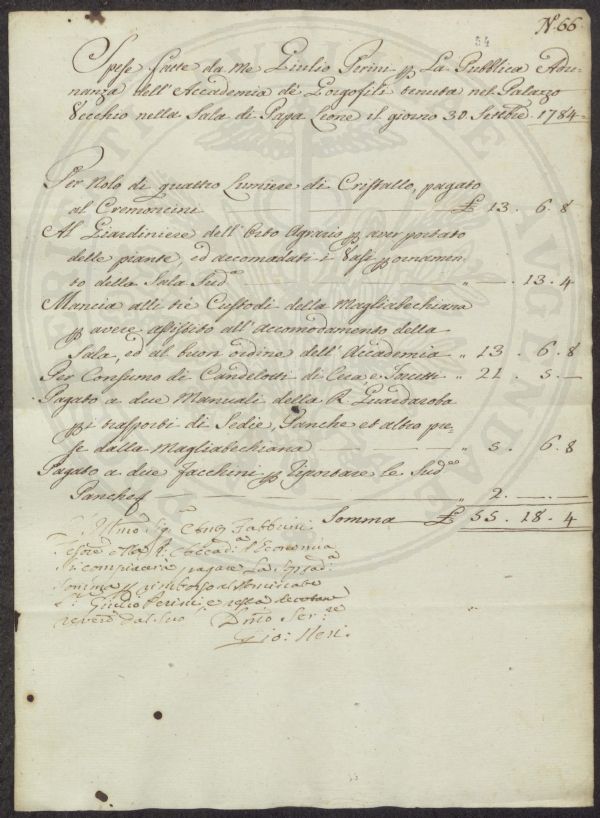 N.° 66.
54
Spese fatte da Me Giulio Perini p La Pubblica Adu-
nanza dell'Accademia de Gorgofili tenuta nel Palazzo
Vecchio nella Sala di Papa Leone il giorno 30 Settbre. 1784
Per Nolo di quattro Lumiere di Cristallo, pagato
al Cremoncini £ 13. 6. 8
Al Giardiniere dell'Orto Agrario p aver portato
delle piante, ed accomodati i Vasi p ornamen-
to della Sala Sud.a " — . 13. 4
Mancia alli tre Custodi della Magliabechiana
p avere assistito all'accomodamento della
Sala, ed al buon ordine dell'Accademia " 13. 6. 8
Per Consumo di Candelotti di Cera e Torcetti " 21. 5. —
Pagato a due Manuali della R. Guardaroba
p i trasporti di Sedie, Panche et altro pre-
se dalla Magliabechiana " 5. 6. 8
Pagato a due Facchini p Riportare le Sud.e
Panche " 2. — . —
Somma £ 55. 18. 4
Illmo Sig. Fabbrini
Tesore della R. Accad.a d'Economia
si compiacerà pagare La
Somma p rimborso al
Giulio Perini e resta
dal suo Dmo Ser.re
Gio: Neri.